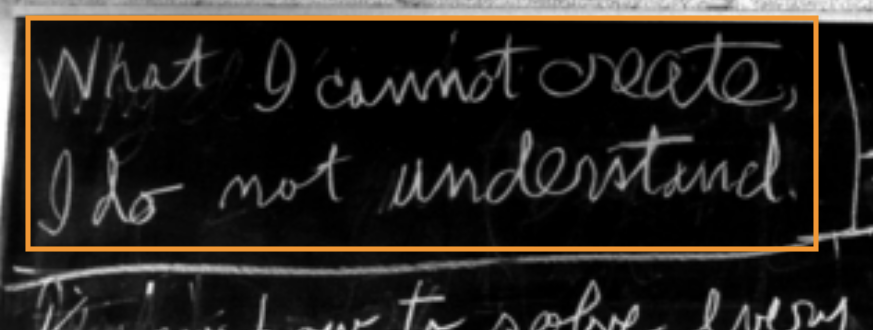 What I cannot create,
I do not understand.
how to solve every